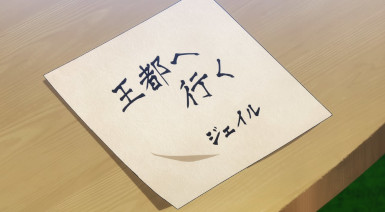 王都へ
行く
ジェイル